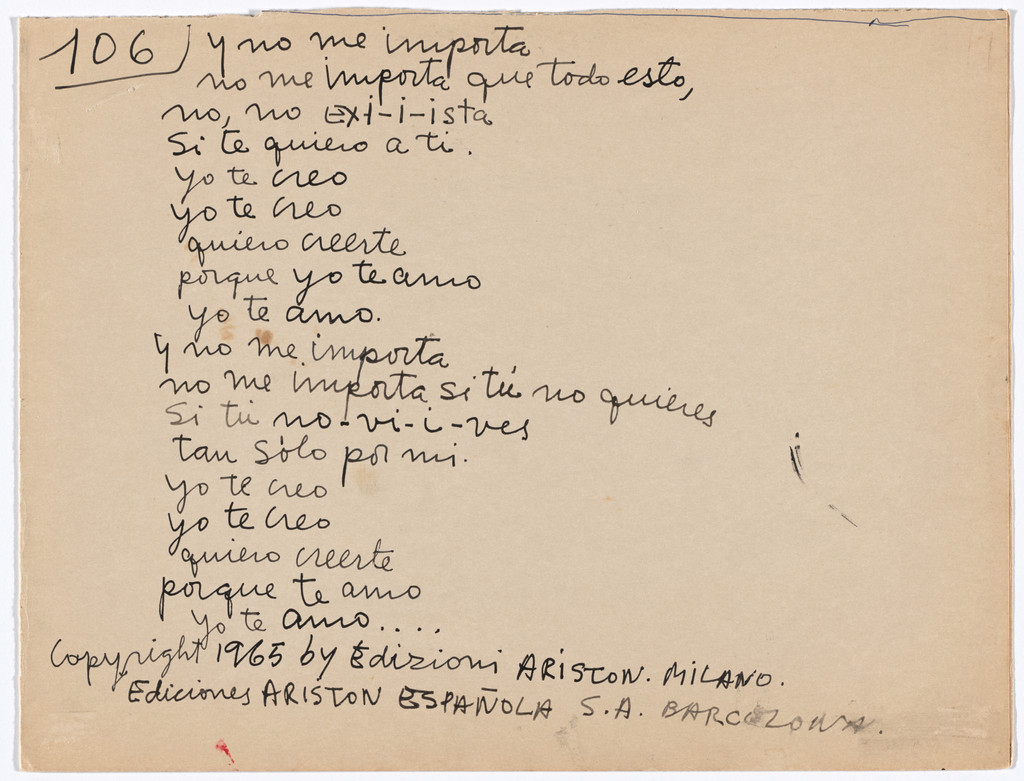 106) Y no me importa
no me importa que todo esto,
no, no exi-i-ista
Si te quiero a ti.
Yo te creo
yo te creo
quiero creerte
porque yo te amo
yo te amo.
Y no me importa
no me importa si tú no quieres
Si tú no-vi-i-ves
tan sólo por mi.
Yo te creo
yo te creo
quiero creerte
porque te amo
yo te amo....
Copyright 1965 by Edizioni ARISTON. MILANO.
Ediciones ARISTON ESPAÑOLA S.A. BARCELONA.